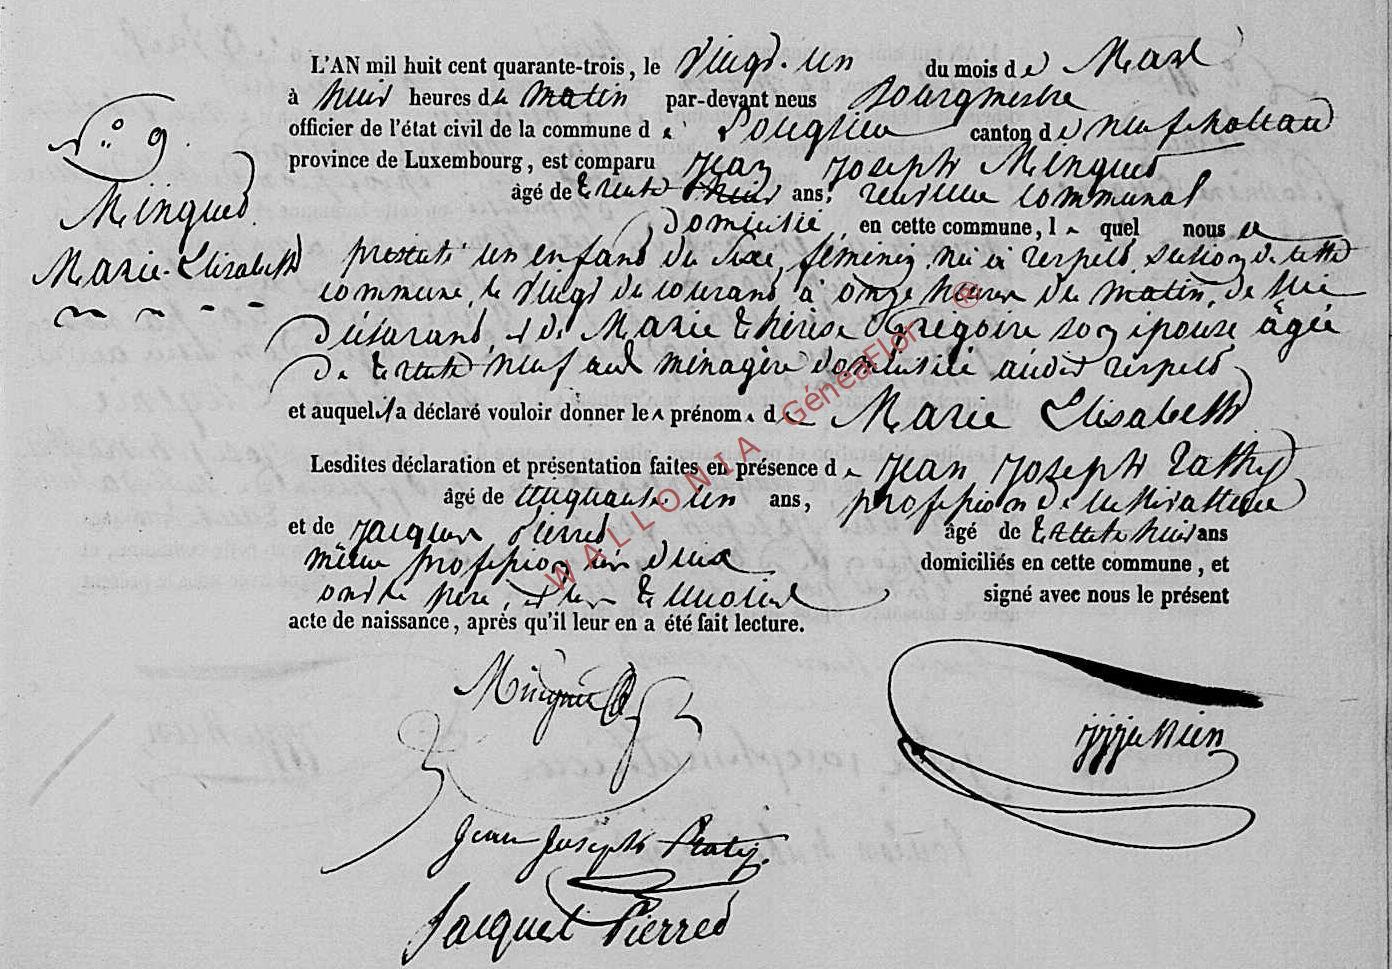 L'AN mil huit cent quarante-trois, le Vingt-un du mois de Mars
à huit heures du matin par-devant nous Bourgmestre
officier de l'état civil de la commune de Longlier canton de neufchateau
province de Luxembourg, est comparu Jean Joseph Minguet
âgé de trente huit ans, receveur communal
Domicilié, en cette commune, lequel nous a
présenté un enfant du sexe féminin, né à respelt, section de cette
commune, le Vingt du courant à onze heures du matin, de lui
Déclarant, et de Marie thérèse Grégoire son épouse âgée
de trente neuf ans ménagère domiciliée audit respelt
et auquel il a déclaré vouloir donner le prénom de Marie Elisabeth
Lesdites déclaration et présentation faites en présence de Jean Joseph
âgé de cinquante un ans, profession de cultivateur
et de Jacques Pierret âgé de trente huit ans
même profession les deux domiciliés en cette commune, et
ont le père, et les témoins signé avec nous le présent
acte de naissance, après qu'il leur en a été fait lecture.
N° 9.
Minguet
Marie-Elisabeth
Minguet
Jean Joseph
Jacques Pierret
WALLONIA GénéaFlor ®